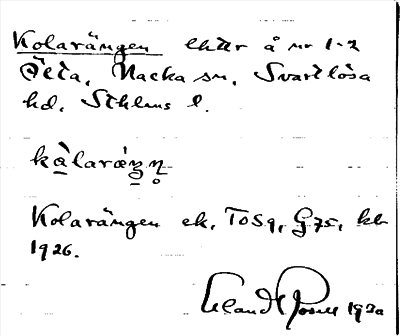 Kolarängen ektr å nr 1-2
Älta, Nacka sn, Svartlösa
hd, Sthlms l.
kàlaráŋn̥
Kolarängen ek, TOSq, G75, kbl
1926.
Roland Posse 1932